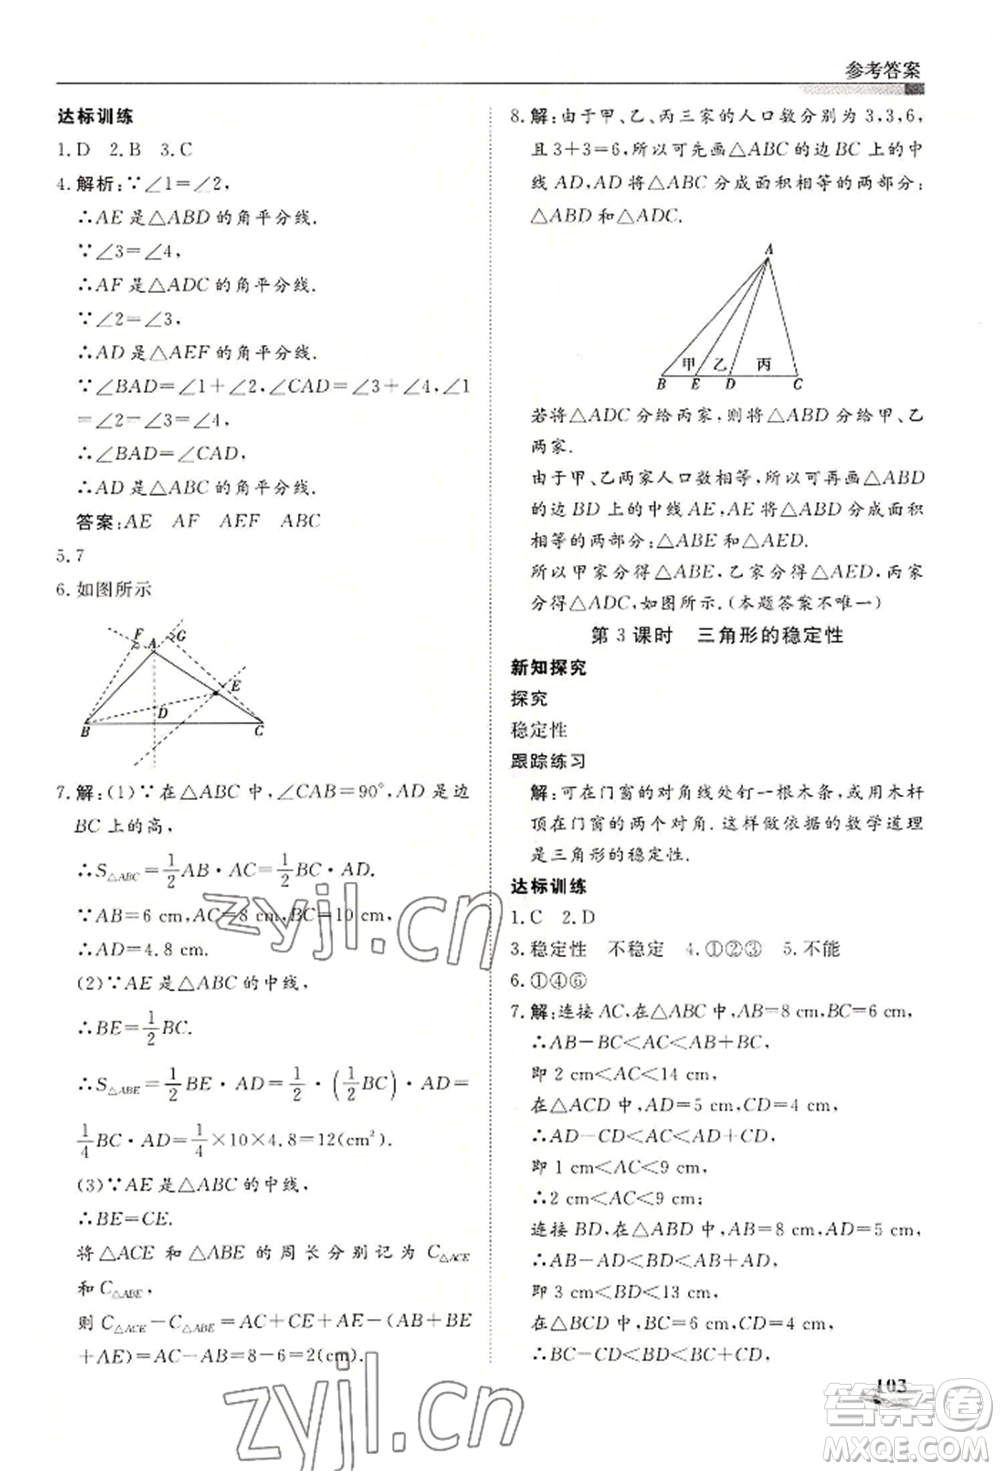 参考答案
达标训练
1.D 2.B 3.C
4.解析:∵∠1=∠2,
∴AE是△ABD的角平分线.
∵∠3=∠4,
∴AF是△ADC的角平分线.
∵∠2=∠3,
∴AD是△AEF的角平分线.
∵∠BAD=∠1+∠2,∠CAD=∠3+∠4,∠1
=∠2=∠3=∠4,
∴∠BAD=∠CAD,
∴AD是△ABC的角平分线.
答案:AE AF AEF ABC
5.7
6.如图所示
F A G
E
D
B C
7.解:(1)∵在△ABC中,∠CAB=90°,AD是边
BC上的高,
∴S△ABC=1/2AB·AC=1/2BC·AD.
∵AB=6 cm,AC=8 cm,BC=10 cm,
∴AD=4.8 cm.
(2)∵AE是△ABC的中线,
∴BE=1/2BC.
∴S△ABE=1/2BE·AD=1/2·(1/2BC)·AD=
1/4BC·AD=1/4×10×4.8=12(cm²).
(3)∵AE是△ABC的中线,
∴BE=CE.
将△ACE和△ABE的周长分别记为C△ACE
和C△ABE,
则C△ACE-C△ABE=AC+CE+AE-(AB+BE
+AE)=AC-AB=8-6=2(cm).
8.解:由于甲、乙、丙三家的人口数分别为3,3,6,
且3+3=6,所以可先画△ABC的边BC上的中
线AD,AD将△ABC分成面积相等的两部分:
△ABD和△ADC.
A
甲 乙 丙
B E D C
若将△ADC分给丙家,则将△ABD分给甲、乙
两家.
由于甲、乙两家人口数相等,所以可再画△ABD
的边BD上的中线AE,AE将△ABD分成面积
相等的两部分:△ABE和△AED.
所以甲家分得△ABE,乙家分得△AED,丙家
分得△ADC.如图所示.(本题答案不唯一)
第3课时 三角形的稳定性
新知探究
探究
稳定性
跟踪练习
解:可在门窗的对角线处钉一根木条,或用木杆
顶在门窗的两个对角.这样做依据的数学道理
是三角形的稳定性.
达标训练
1.C 2.D
3.稳定性 不稳定 4.①②③ 5.不能
6.①④⑥
7.解:连接AC,在△ABC中,AB=8 cm,BC=6 cm,
∴AB-BC<AC<AB+BC,
即2 cm<AC<14 cm,
在△ACD中,AD=5 cm,CD=4 cm,
∴AD-CD<AC<AD+CD,
即1 cm<AC<9 cm,
∴2 cm<AC<9 cm;
连接BD,在△ABD中,AB=8 cm,AD=5 cm,
∴AB-AD<BD<AB+AD,
即3 cm<BD<13 cm,
在△BCD中,BC=6 cm,CD=4 cm,
∴BC-CD<BD<BC+CD,
103
zyjl.cn
zyjl.cn
答案卷
MXQE.COM